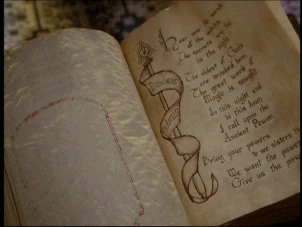 Hear now the words
of the
the secrets we hid
in the
The oldest of Gods
are invoked here
The great work of
Magic is sought
In this night and
in this hour
I call upon the
Ancient Power.
Bring your powers
to we sisters
We want the power
Give us the power